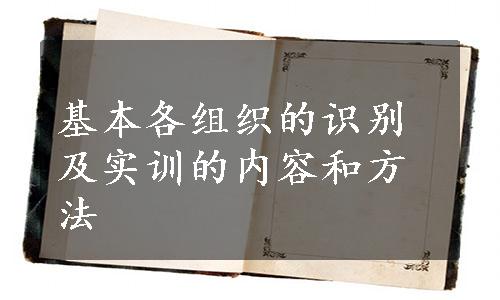 基本各组织的识别
及实训的内容和方
法